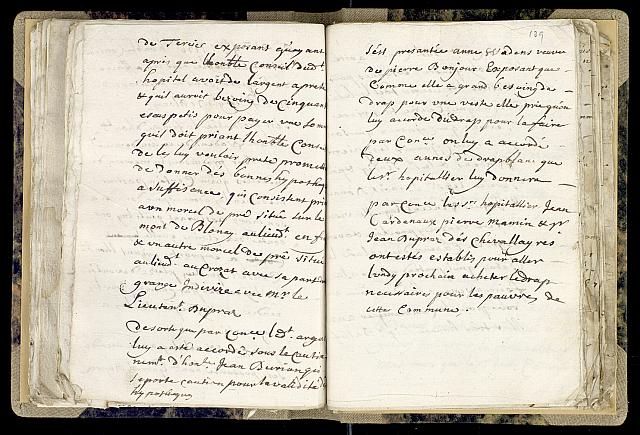 de Terciés exposans qu'ayant
apres que lhonble Conseil dudt
hopital avoit de largent a preter
& quil auroit besoing de Cinquante
escus petis pour payer une som
quil doit priant lhonble Conse
de le luy vouloir preté promett
de donner dés bonnes hypotheq
a suffisance, qui Consistent pri
a un morcel de pré situé sur le
mont de Blonay au lieudt en fu
& un autre morcel de prés situé
au lieudt au Crozat avec sa part de
grange indivize avec mr le
Lieutent Dupraz
desorte que par Conce ledt argen
luy a esté accordé sous le Cautio
nemt d'honle Jean Buriangis
se porte caution pour la validité de
hypotheques
139
s'est presantée anne veuve
de pierre Bonjour Exposant que
Comme elle a grand besoing de
drap pour une veste elle prie quon
luy acorde du drap pour la faire
par Conce on luy a acordé
deux aunes de drap blanc que
le sr hopitallier luy donnera
par Conce les srs hopitallier Jean
Cardenaux pierre Mamin & sr
Jean Dupraz dés Chevallayres
ont estés establis pour aller
lundy prochain acheter le drap
necessaire pour les pauvres de
cette Commune.